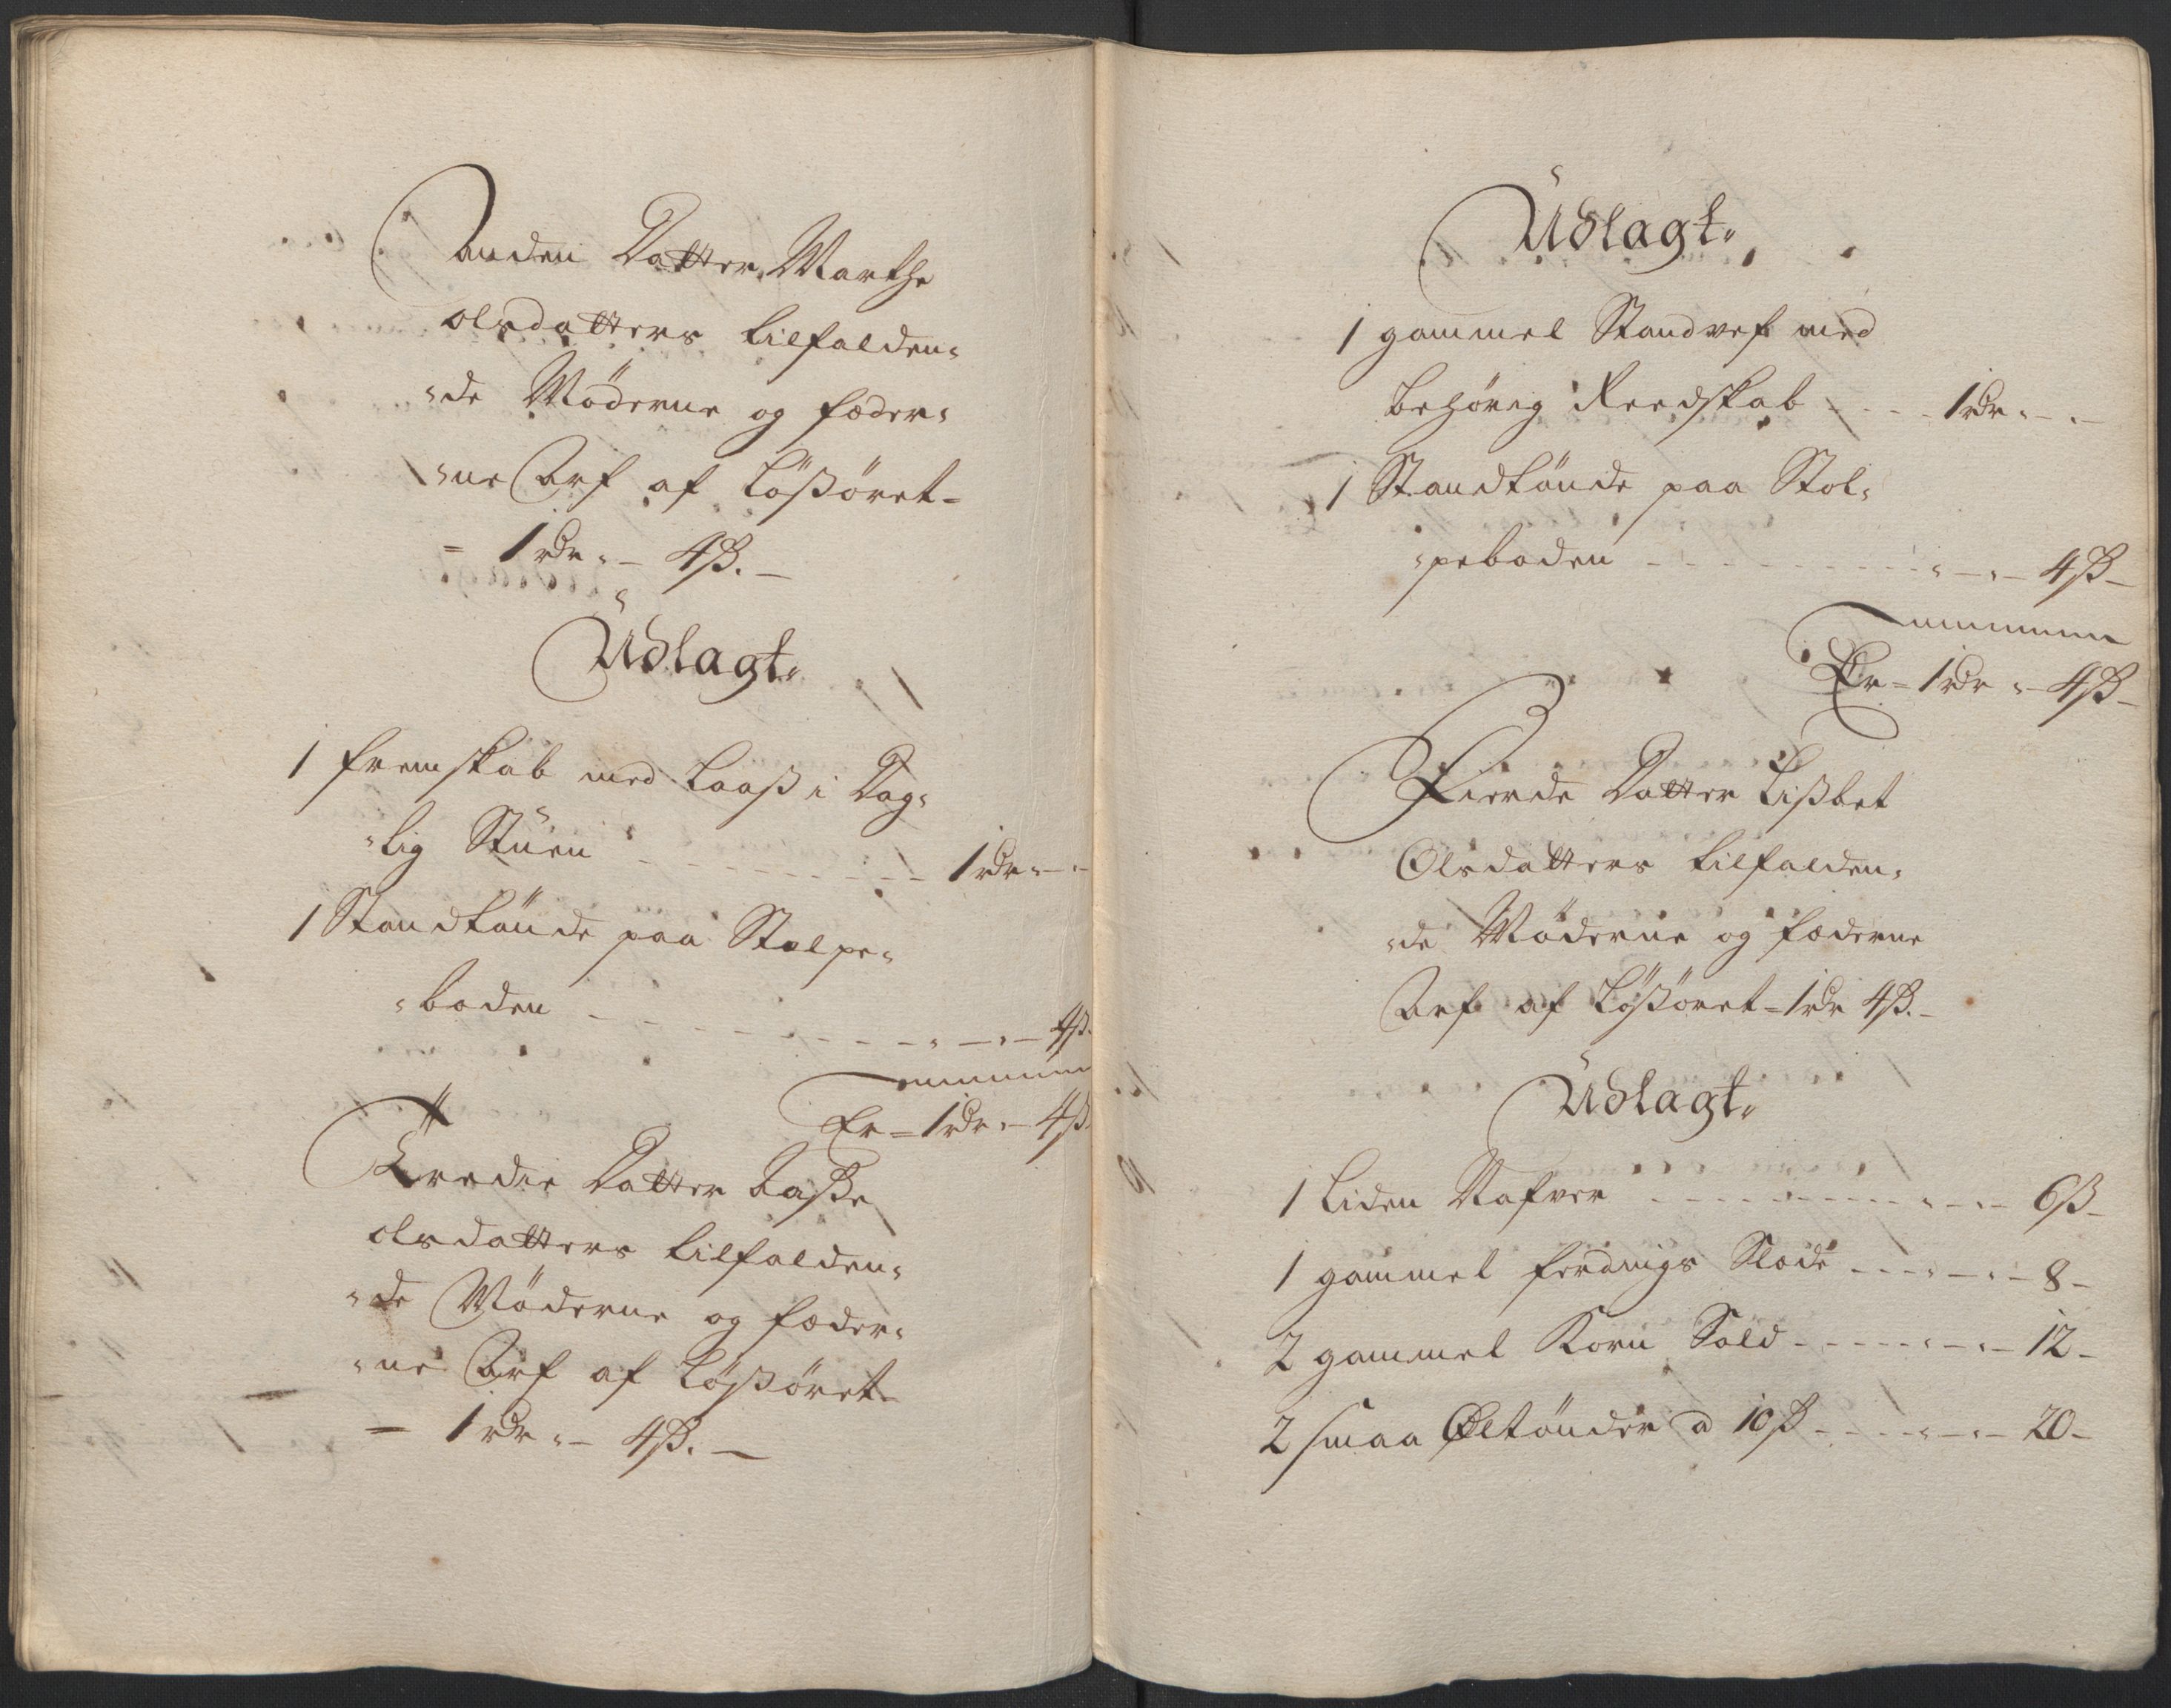 Anden Datter Marthe
olsdatters tilfalden:
:de Möderne og fæder:
:ne Arf af Lößöret =
= 1 rdr :– 4 ß. –
Udlagt.
1 fremskab med Laaß i Dag:
:lig Stüen - - - - 1 rdr : –
1 Standtönde paa Stolpe:
:boden - - - - : – : – 4 ß.
Summa
Er = 1 rdr : – 4 ß.
Tredie Datter
olsdatters tilfalden:
:de Möderne og fæder:
:ne Arf af Lößöret
= 1 rdr : – 4 ß. –
Udlagt.
1 gammel Standvef med
behörig Reedskab - - - 1 rdr : – . –
1 Standtönde paa Stol:
:peboden - - - - : – : – 4 ß –
Summa
Er = 1 rdr : – 4 ß –
Fierde Datter Lißbet
Olsdatters tilfalden:
:de Möderne og fæderne
Arf af Lößöret = 1 rdr 4 ß. –
Udlagt.
1 liden Nafver - - - - : – : – 6 ß –
1 gammel Slæde - - - : – : – 8 –
2 gammel Korn Sold - - - - : – : – 12 –
2 smaa Öltönder a 10 ß - - - : – : – 20 –